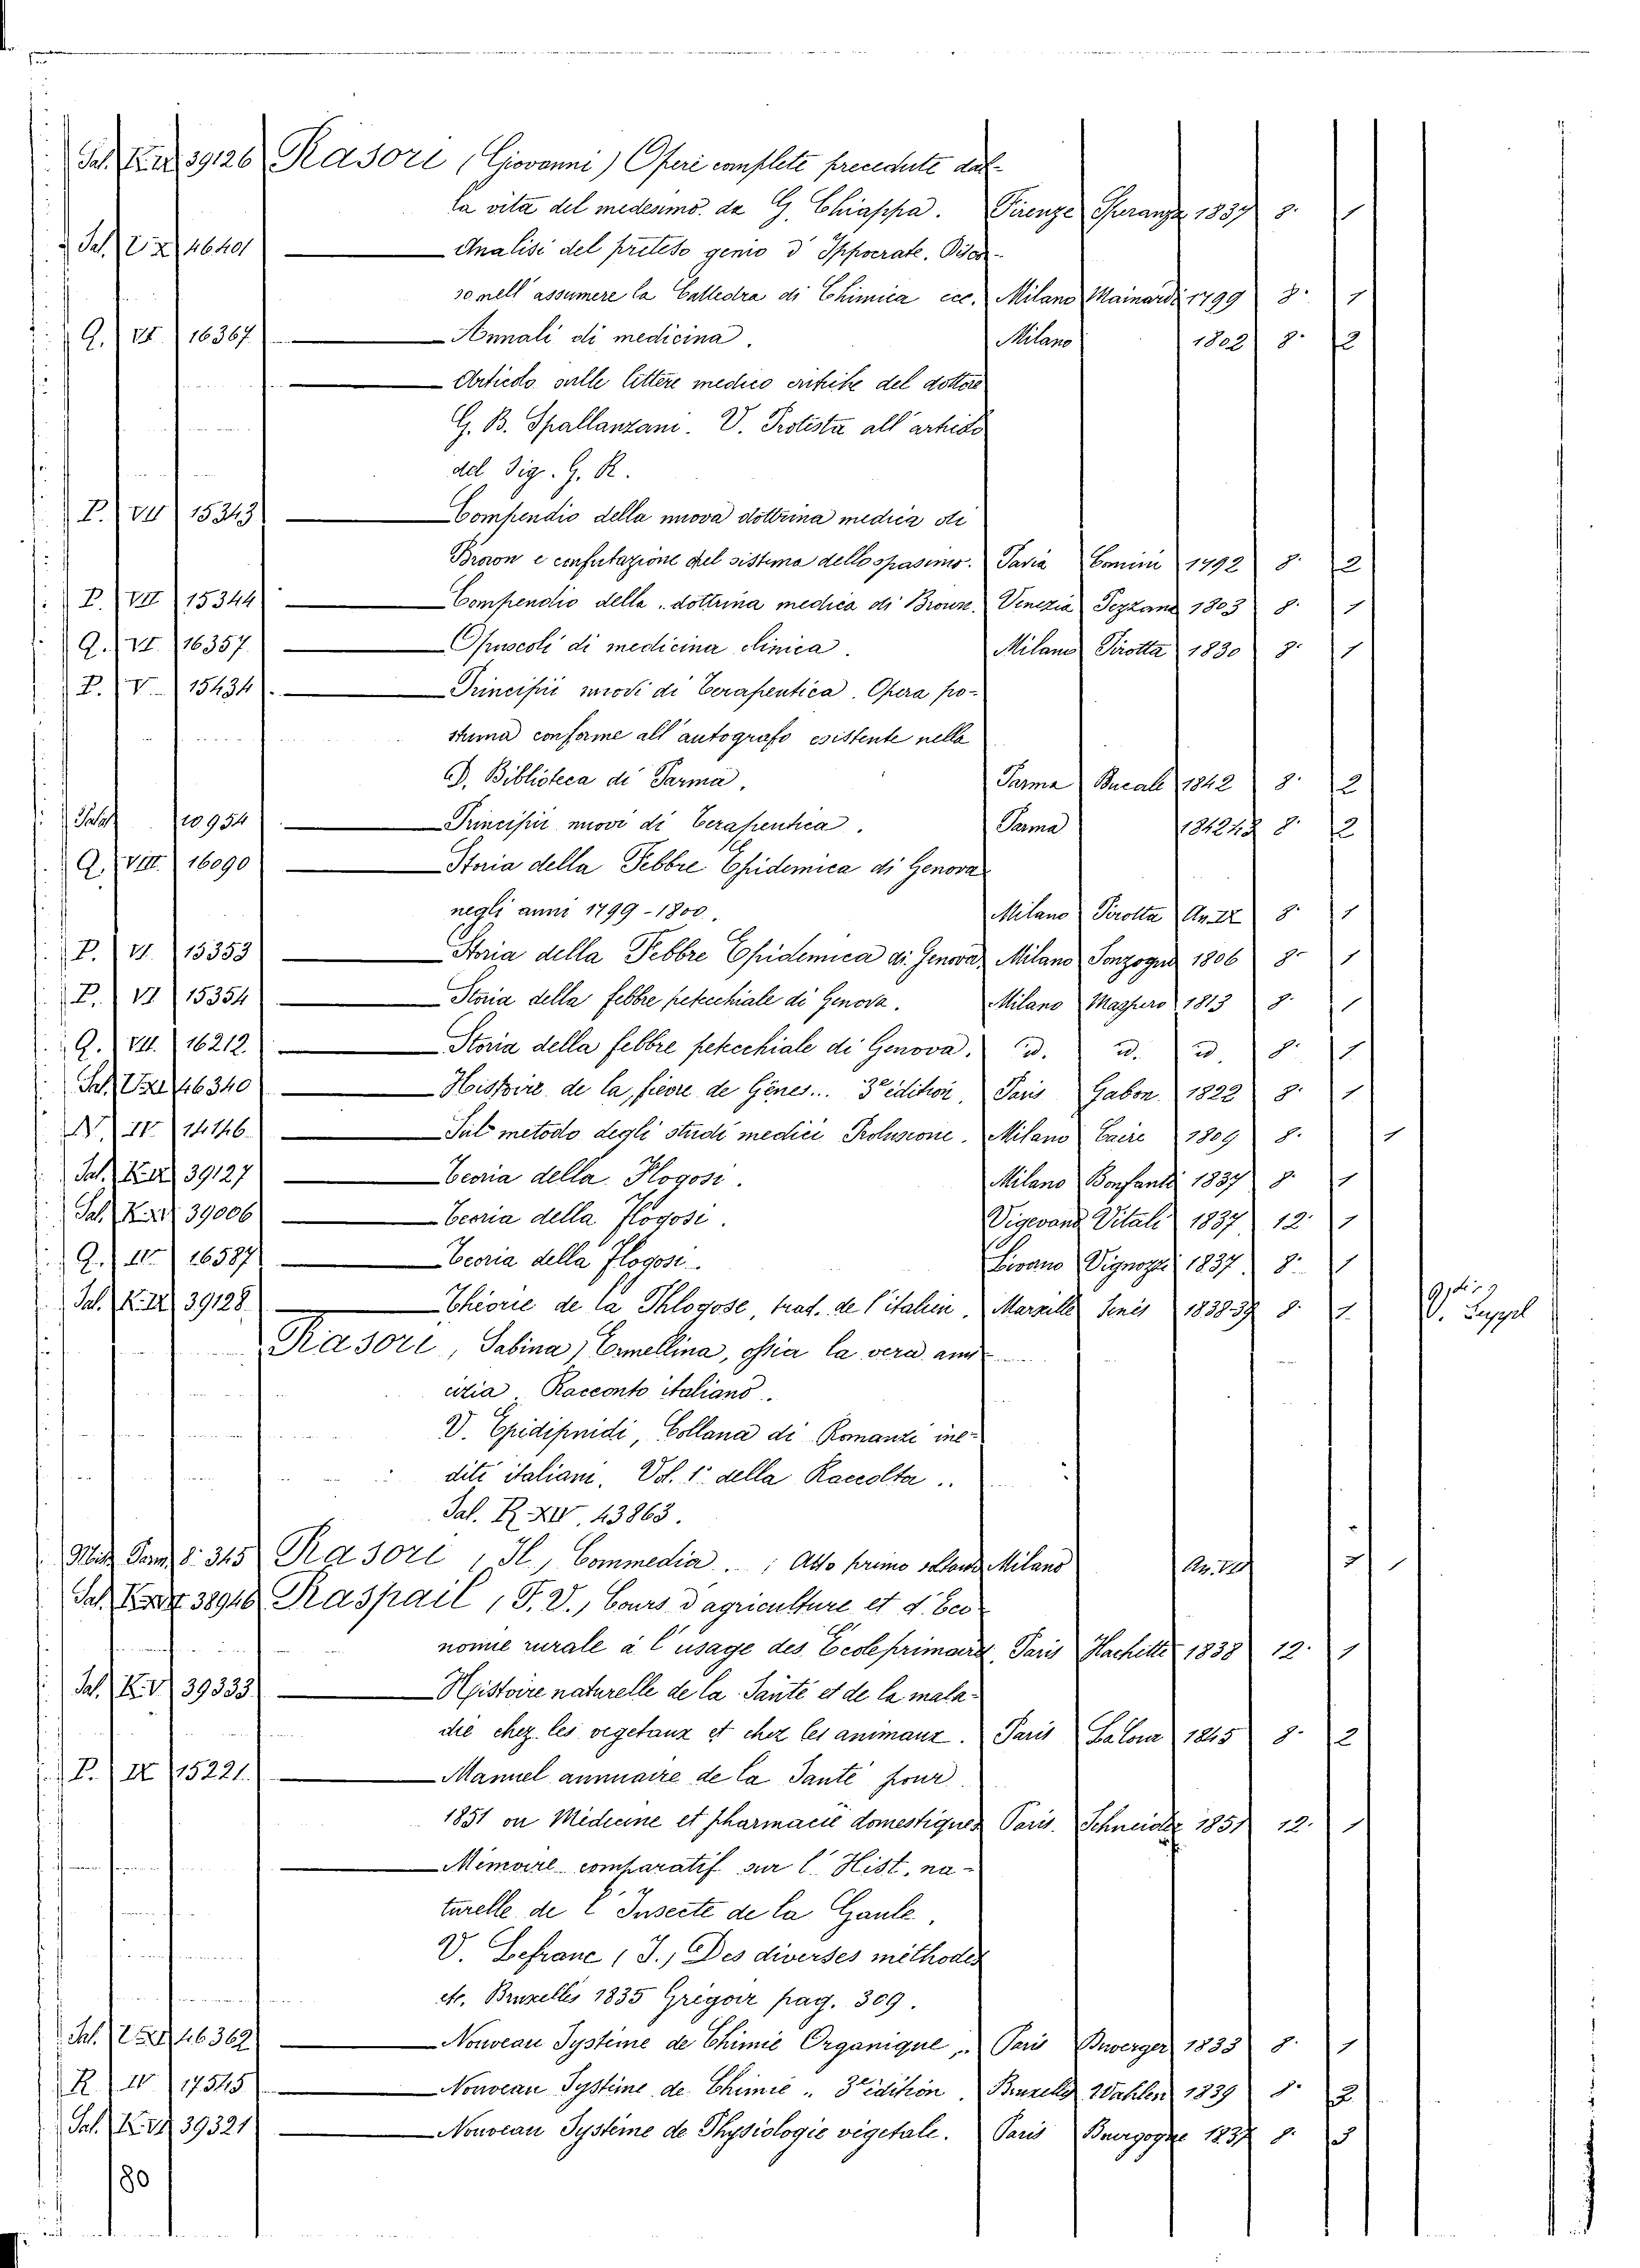 Sal. K. IX 39126 Rasori (Giovanni) Opere complete precedute dal-
la vita del medesimo da G. Chiappa. Firenze Speranza 1837 8. 1
Sal. 46401 — Analisi del preteso genio d'Ippocrate. Discor-
so nell'assumere la Cattedra di Chimica ecc. Milano Mainardi 1799 8. 1
Q. VI 16367 — Annali di medicina. Milano 1802 8. 2
— Articolo sulle lettere medico critiche del dottore
G. B. Spallanzani. V. Protesta all'articolo
del Sig. G. R.
P. VII 15343 — Compendio della nuova dottrina medica di
Brown e confutazione del sistema dello spasimo. Pavia Comini 1792 8. 2
P. VII 15344 — Compendio della dottrina medica di Brown. Venezia Pezzana 1803 8. 1
Q. VI. 16357 — Opuscoli di medicina clinica. Milano Pirotta 1830 8. 1
P. V 15434 — Principii nuovi di Terapeutica. Opera po-
stuma conforme all'autografo esistente nella
D. Biblioteca di Parma. Parma Ducale 1842 8. 2
Palat 10954 — Principii nuovi di Terapeutica. Parma 8. 2
Q. VIII. 16090 — Storia della Febbre Epidemica di Genova
negli anni 1799-1800. Milano Pirotta An. IX 8. 1
P. VI. 15353 — Storia della Febbre Epidemica di Genova. Milano Sonzogno 1806 8. 1
P. VI 15354 — Storia della febbre petecchiale di Genova. Milano Maspero 1813 8. 1
Q. VII. 16212 — Storia della febbre petecchiale di Genova. id. id. id. 8. 1
Sal. 46340 — Histoire de la fièvre de Gênes... 3e edition. Paris Gabon 1822 8. 1
N. IV 14146 — Sul metodo degli studi medici Prolusione. Milano Caire 1809 8. 1
Sal. K. IX 39127 — Teoria della Flogosi. Milano Bonfanti 1837 8. 1
Sal. 39006 — Teoria della flogosi. Vigevano Vitali 1837 12. 1
Q. IV. 16587 — Teoria della Flogosi. Livorno Vignozzi 1837 8. 1
Sal. K. IX 39128 — Théorie de la Phlogose, trad. de l'italien. Marseille Senés 1838-39 8. 2
Rasori, Sabina, Ermellina, ossia la vera ami-
cizia. Racconto italiano.
V. Epidipnidi, Collana di Romanzi ine-
diti italiani. Vol. 1° della Raccolta..
Sal. R. XIV. 43863.
Misc. Parm. 8. 345 Rasori, Il, Commedia... Atto primo soltanto Milano An. VII 8 1
Sal. 38946 Raspail, F. V., Cours d'agriculture et d'Eco-
nomie rurale à l'usage des Ecole primaires. Paris Hachette 1838 12. 1
Sal. K. V 39333 — Histoire naturelle de la Santé et de la mala-
die chez les vegetaux et chez les animaux. Paris 1845 8. 2
P. IX 15221. — Manuel annuaire de la Santé pour
1851 ou Médecine et pharmacie domestiques Paris. Schneider 1851 12. 1
— Mémoire comparatif sur l'Hist. na-
turelle de l'Insecte de la Gaule.
V. Lefranc (J.) Des diverses méthodes
etc. Bruxelles 1835 Grégoir pag. 309.
Sal. 46362 — Nouveau Système de Chimie Organique.. Paris 1833 8. 1
R IV 17545 — Nouveau Système de Chimie.. 3e édition. Bruxelles Wahlen 1839 8. 2
Sal. K. VI 39321 — Nouveau Système de Physiologie végétale. Paris Bourgogne 1837 8. 3
180